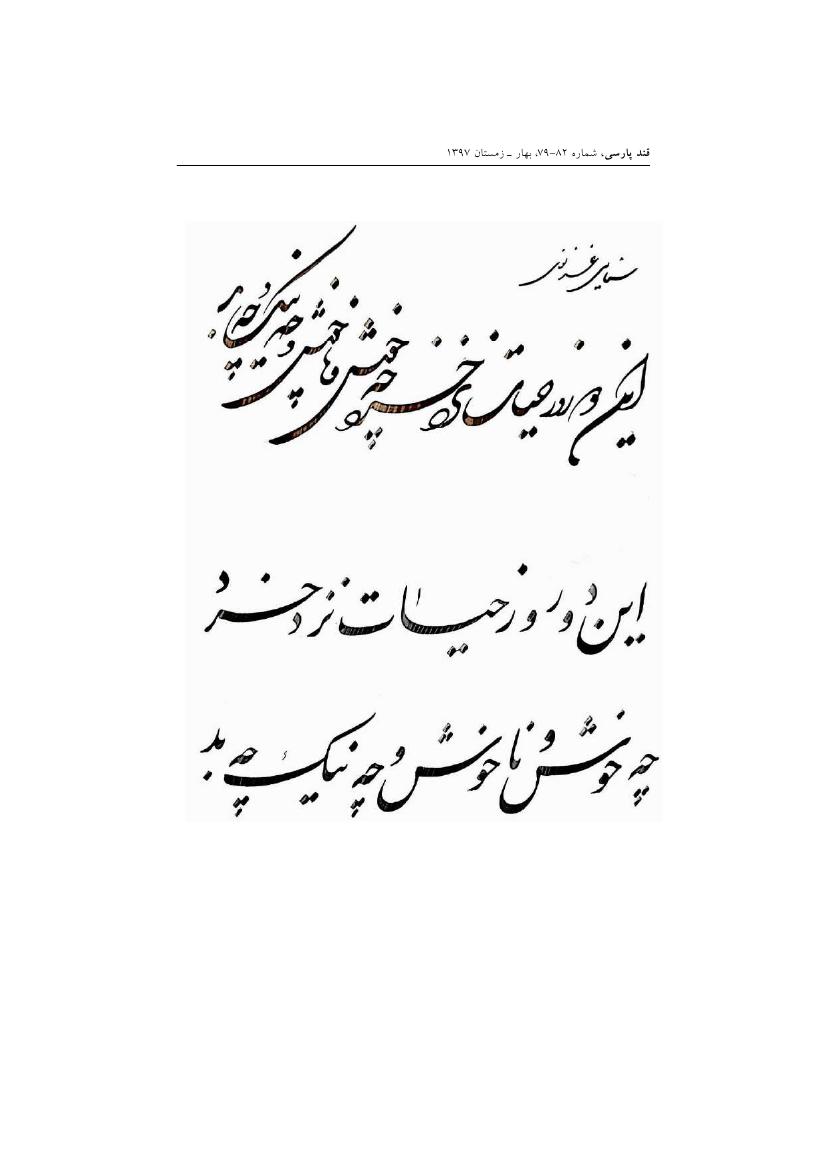 قند پارسی، شماره ۸۲-۷۹، بهار ـ زمستان ۱۳۹۷
سنایی غزنوی
این دو روز حیات نزد خرد چه خوش و ناخوش و چه نیک و چه بد
این دو روز حیات نزد خرد
چه خوش و ناخوش و چه نیک چه بد